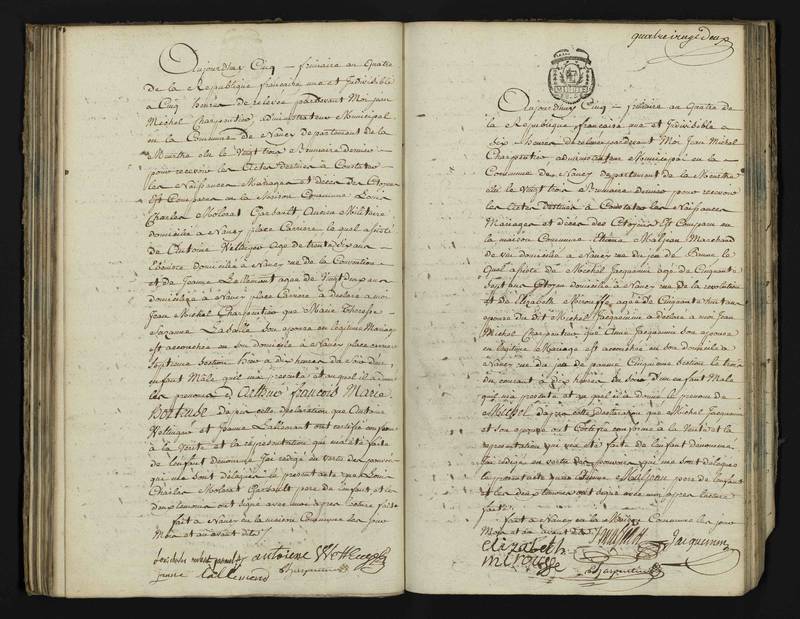 Aujourd'huy Cinq — frimaire an Quatre
de la Republique francaise une et Indivisible
a Cinq heures de relevée pardevant Moi jean
Michel Charpentier, administrateur Municipal
en la Commune de Nancy departement de la
Meurthe elu le Vingt trois Brumaire dernier —
pour recevoir les Actes destinés à Constater
les Naissances Mariages et décès des Citoyens
Est Comparu en la Maison Commune Louis
Charles Militaire
domicilié a Nancy place Carriere lequel assisté
de Antoine age de trente Six ans —
domicilié a Nancy rue de la Convention —
et de Jeanne Lallemant agée de Vingt ans
domiciliée a Nancy place Carriere a declaré a moi
Jean Michel Charpentier que Marie Therese
Suzanne Lasalle Son epouse en légitime Mariage
est accouchée en son domicile a Nancy place carriere
Section a dix heures du Soir d'un
enfant Mâle qu'il m'a presenté et auquel il a donné
les prenoms d' Arthus françois Maria
d'apres cette declaration que Antoine
et Jeanne Lallemant ont certifié conforme
à la Verité et la représentation qui m'a été faite
de l'enfant dénommé J'ai redigé en vertu des pouvoirs
qui me sont délégués le present acte que Louis
Charles pere de l'enfant et les
deux temoins ont Signé avec moi apres lecture faite
fait a Nancy en la maison Commune les jour
Mois et an avant dits
antoiene
jeanne lallemend Charpentier
quatre vingt deux
Aujourd'huy Cinq — frimaire an Quatre de
la Republique francaise une et Indivisible a
Six heures de relevee pardevant Moi Jean Michel
Charpentier administrateur Municipal en la —
Commune de Nancy departement de la Meurthe
elu le vingt trois Brumaire dernier pour recevoir
les Actes Destinés a Constater les Naissances
Mariages et décès des Citoyens Est Comparu en
la maison Commune Etienne Maljean Marchand
de vin domicilié a Nancy rue du jeu de Paume le
Quel assisté de Michel Jacquemin agé de Cinquante
Sept ans Citoyen domicilié a Nancy rue de la revolution
et de Elizabeth agée de Cinquante huit ans
epouse du dit Michel Jacquemin a declaré a moi Jean
Michel Charpentier que Anne Jacquemin son epouse
en legitime Mariage est accouchée en son domicile a
Nancy rue du jeu de paume Cinquieme Section le trois
du courant a dix heures du Soir d'un enfant Male
qui m'a presenté et auquel il a donné le prenom de
Michel d'apres cette declaration que Michel Jacquemin
et son epouse ont Certifié conforme a la Verité et la
representation qui m'a été faite de l'enfant denommé
J'ai redigé en vertu des pouvoirs qui me sont delegues
le present acte que Etienne Maljean pere de l'enfant
et les deux temoins ont signé avec moi apres lecture
faite
fait a Nancy en la Maison Commune les jour
Mois et an avant dits Jacquemin
elizabeth
mirousse Charpentier